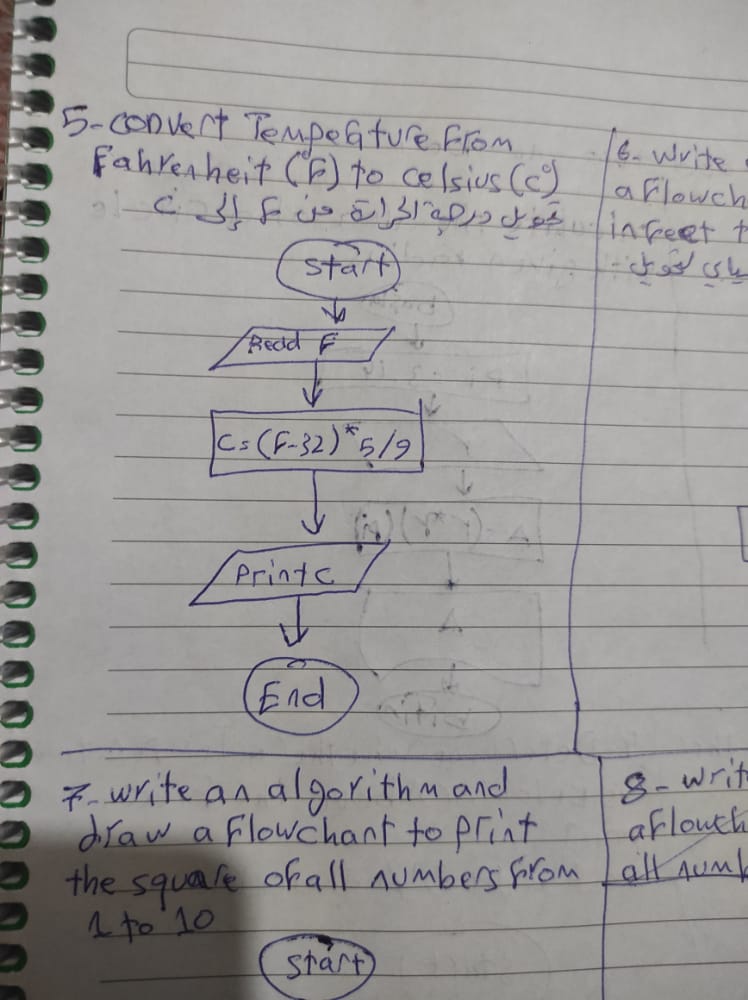 5- convert Temperature From
Fahrenheit (°F) to celsius (c°)
تحويل درجة الحرارة من F إلى C
Start
Read F
C = (F-32) * 5/9
Print C
End
6- write
a flowch
in feet t
7- write an algorithm and
draw a flowchart to print
the square of all numbers from
1 to 10
Start
8- writ
a flowch
all numb